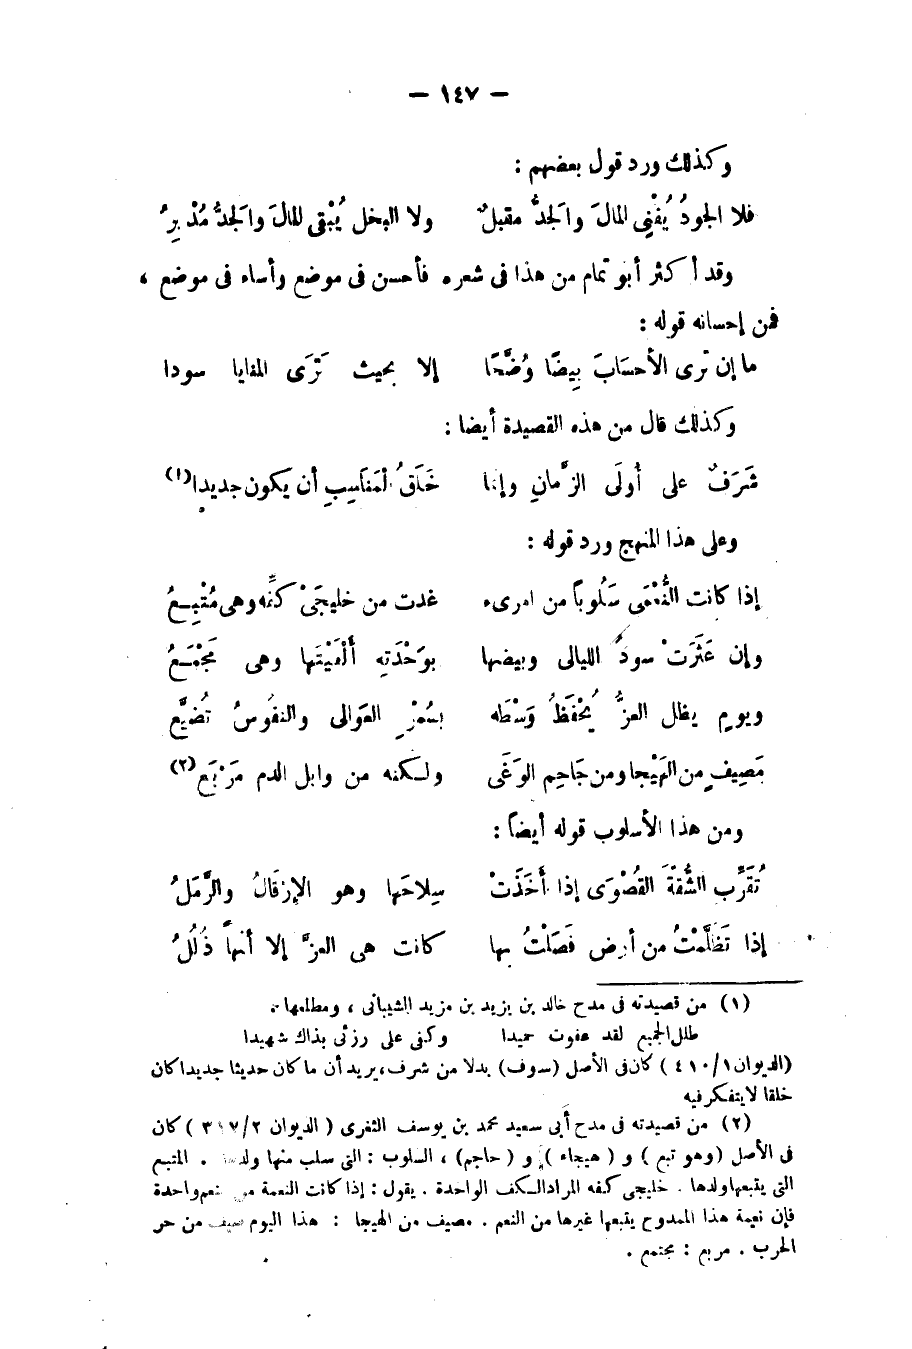 — ١٤٧ —
وكذلك ورد قول بعضهم :
فلا الجودُ يُفْنِي المالَ والجدُّ مقبلٌ ولا البخل يُبْقى المالَ والجدُّ مُدْبرُ
وقد أكثر أبو تمام من هذا فى شعره فأحسن فى موضع وأساء فى موضع ،
فمن إحسانه قوله :
ما إن تَرى الأحسَابَ بِيضًا وُضَّحًا إلا بحيث تَرَى المنايا سودا
وكذلك قال من هذه القصيدة أيضا :
شَرَفٌ على أُولَى الزَّمانِ وإنما خَلَقُ المَنَاسِبِ أن يكون جديدا (١)
وعلى هذا المنهج ورد قوله :
إذا كانت النُّعْمَى سَلُوبًا من امرىء غدت من خليجَىْ كفِّه وهى مُتْبِعُ
وإن عَثَرَتْ سودُ الليالى وبيضها بوَحْدَتِه أَلْفَيْتَها وهى مَجْمَعُ
ويومٍ يظل العزُّ يُحْفَظُ وَسْطَه بسُمْرِ العَوَالى والنفُوسُ تُضَيَّع
مَصِيفٍ من الهَيْجا ومن جَاحِمِ الوَغَى ولكنه من وابل الدم مَرْبَع (٢)
ومن هذا الأسلوب قوله أيضاً :
تُقَرِّب الشُّقَةَ القُصْوَى إذا أَخَذَتْ سِلاحَها وهو الإرْقالُ والرَّمَلُ
إذا تَظَلَّمْتُ من أرض فَصَلْتُ بها كانت هى العزَّ إلا أنهاَ ذُلُلُ
(١) من قصيدته فى مدح خالد بن يزيد بن مزيد الشيبانى ، ومطلعها :
طلل الجميع لقد عفوت حميدا وكفى على رزئى بذاك شهيدا
(الديوان ٤١٠/١) كان فى الأصل (سوف) بدلا من شرف، يريد أن ما كان حديثا جديدا كان
خلقا لا يتفكر فيه
(٢) من قصيدته فى مدح أبى سعيد محمد بن يوسف الثغرى ( الديوان ٣١٧/٢ ) كان
فى الأصل (وهو تبع ) و ( هيجاء ) و ( حاجم) ، السلوب : التى سلب منها ولدها . المتبع
التى يتبعها ولدها . خليجى كفه المراد الكف الواحدة . يقول : إذا كانت النعمة من نعم واحدة
فإن نعيمة هذا الممدوح يتبعها غيرها من النعم . مصيف من الهيجا : هذا اليوم صيف من حر
الحرب . مربع : مجتمع .